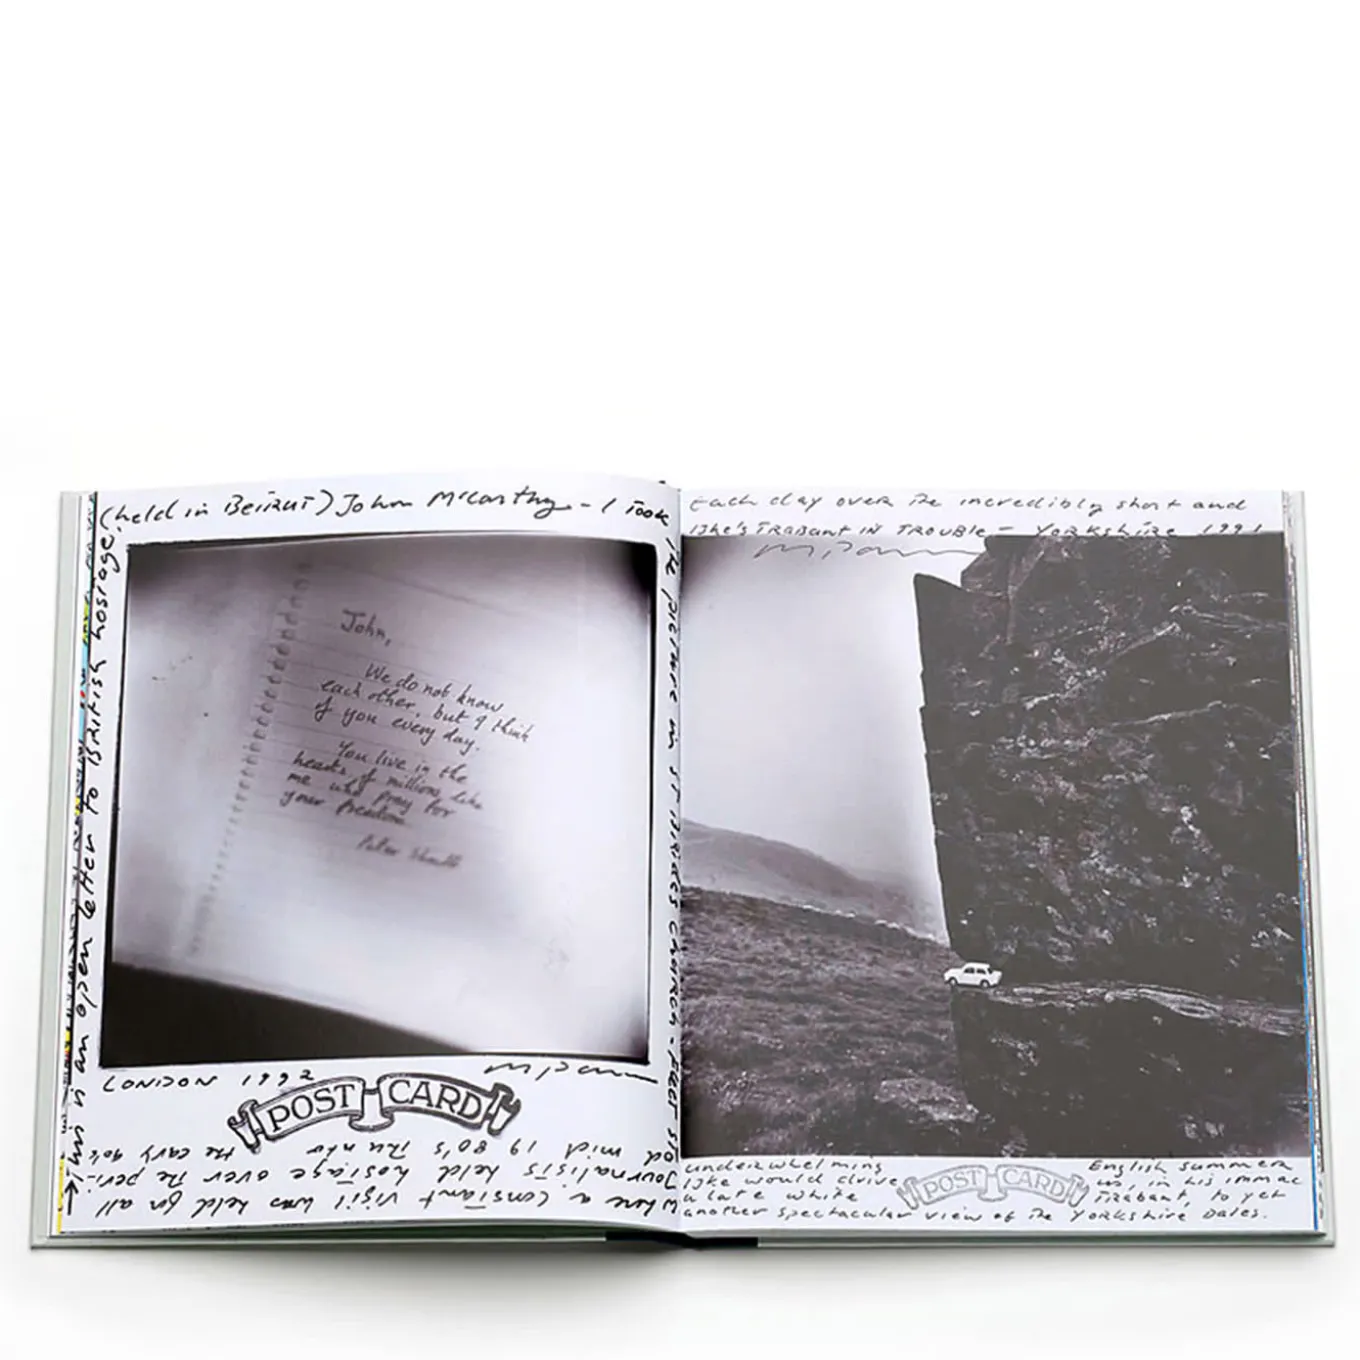 this is an open letter to British hostage
(held in Beirut) John McCarthy - I took
the picture in St Brides Church - Fleet St
where a constant vigil was held for all
journalists held hostage over the peri
od mid 1980's thru the early 90's
John,
We do not know
each other, but I think
of you every day.
You live in the
hearts of millions like
me who pray for
your freedom.
Peter
LONDON 1992
POST CARD
Each day over the incredibly short and
underwhelming English summer
Iske would drive us, in his immac
ulate white Trabant, to yet
another spectacular view of the Yorkshire Dales.
Iske's TRABANT IN TROUBLE - YORKSHIRE 1991
POST CARD